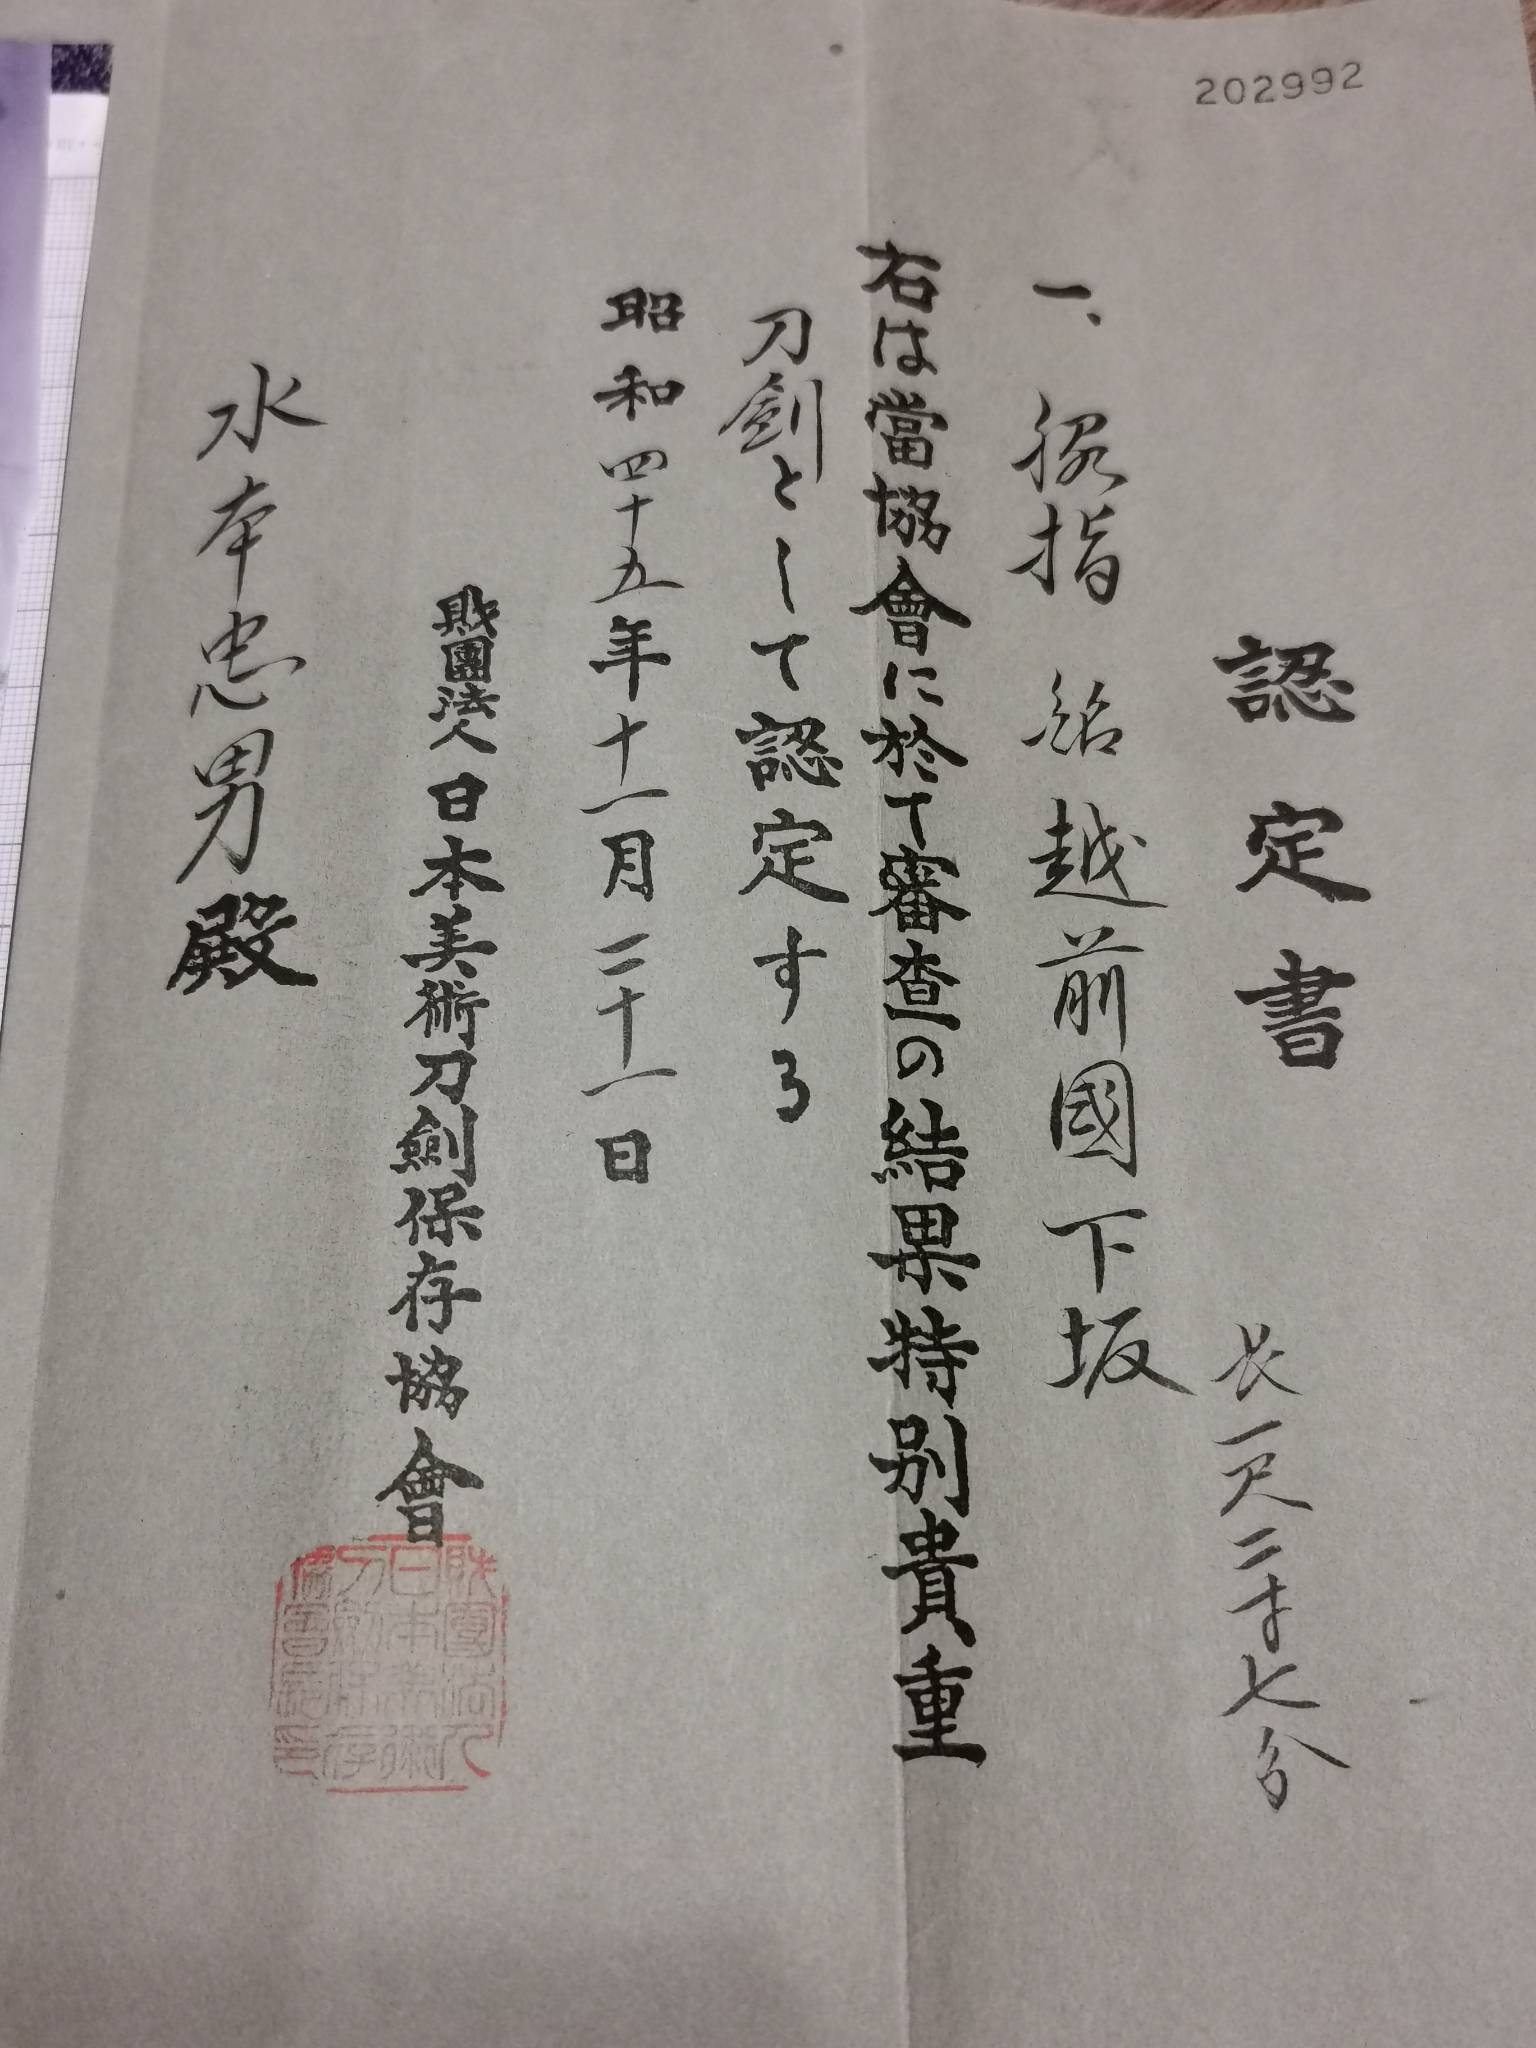 202992
認定書
長一尺二寸七分
一、脇指 銘 越前國下坂
右は當協會に於て審査の結果特別貴重
刀劍として認定する
昭和四十五年十一月二十一日
財團法人日本美術刀劍保存協會
財團法人日本美術刀劍保存協會長之印
水本忠男殿